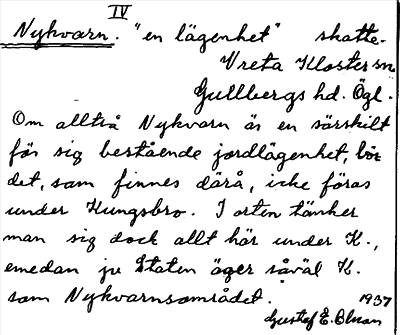 IV
Nykvarn. "en lägenhet" skatte.
Vreta Kloster sn
Gullbergs hd. Ögl.
Om alltså Nykvarn är en särskilt
för sig bestående jordlägenhet, bör
det, som finnes därå, icke föras
under Kungsbro. I orten tänker
man sig dock allt här under K.,
emedan ju Staten äger såväl K.
som Nykvarnsområdet. 1937
Gustaf E. Olsson